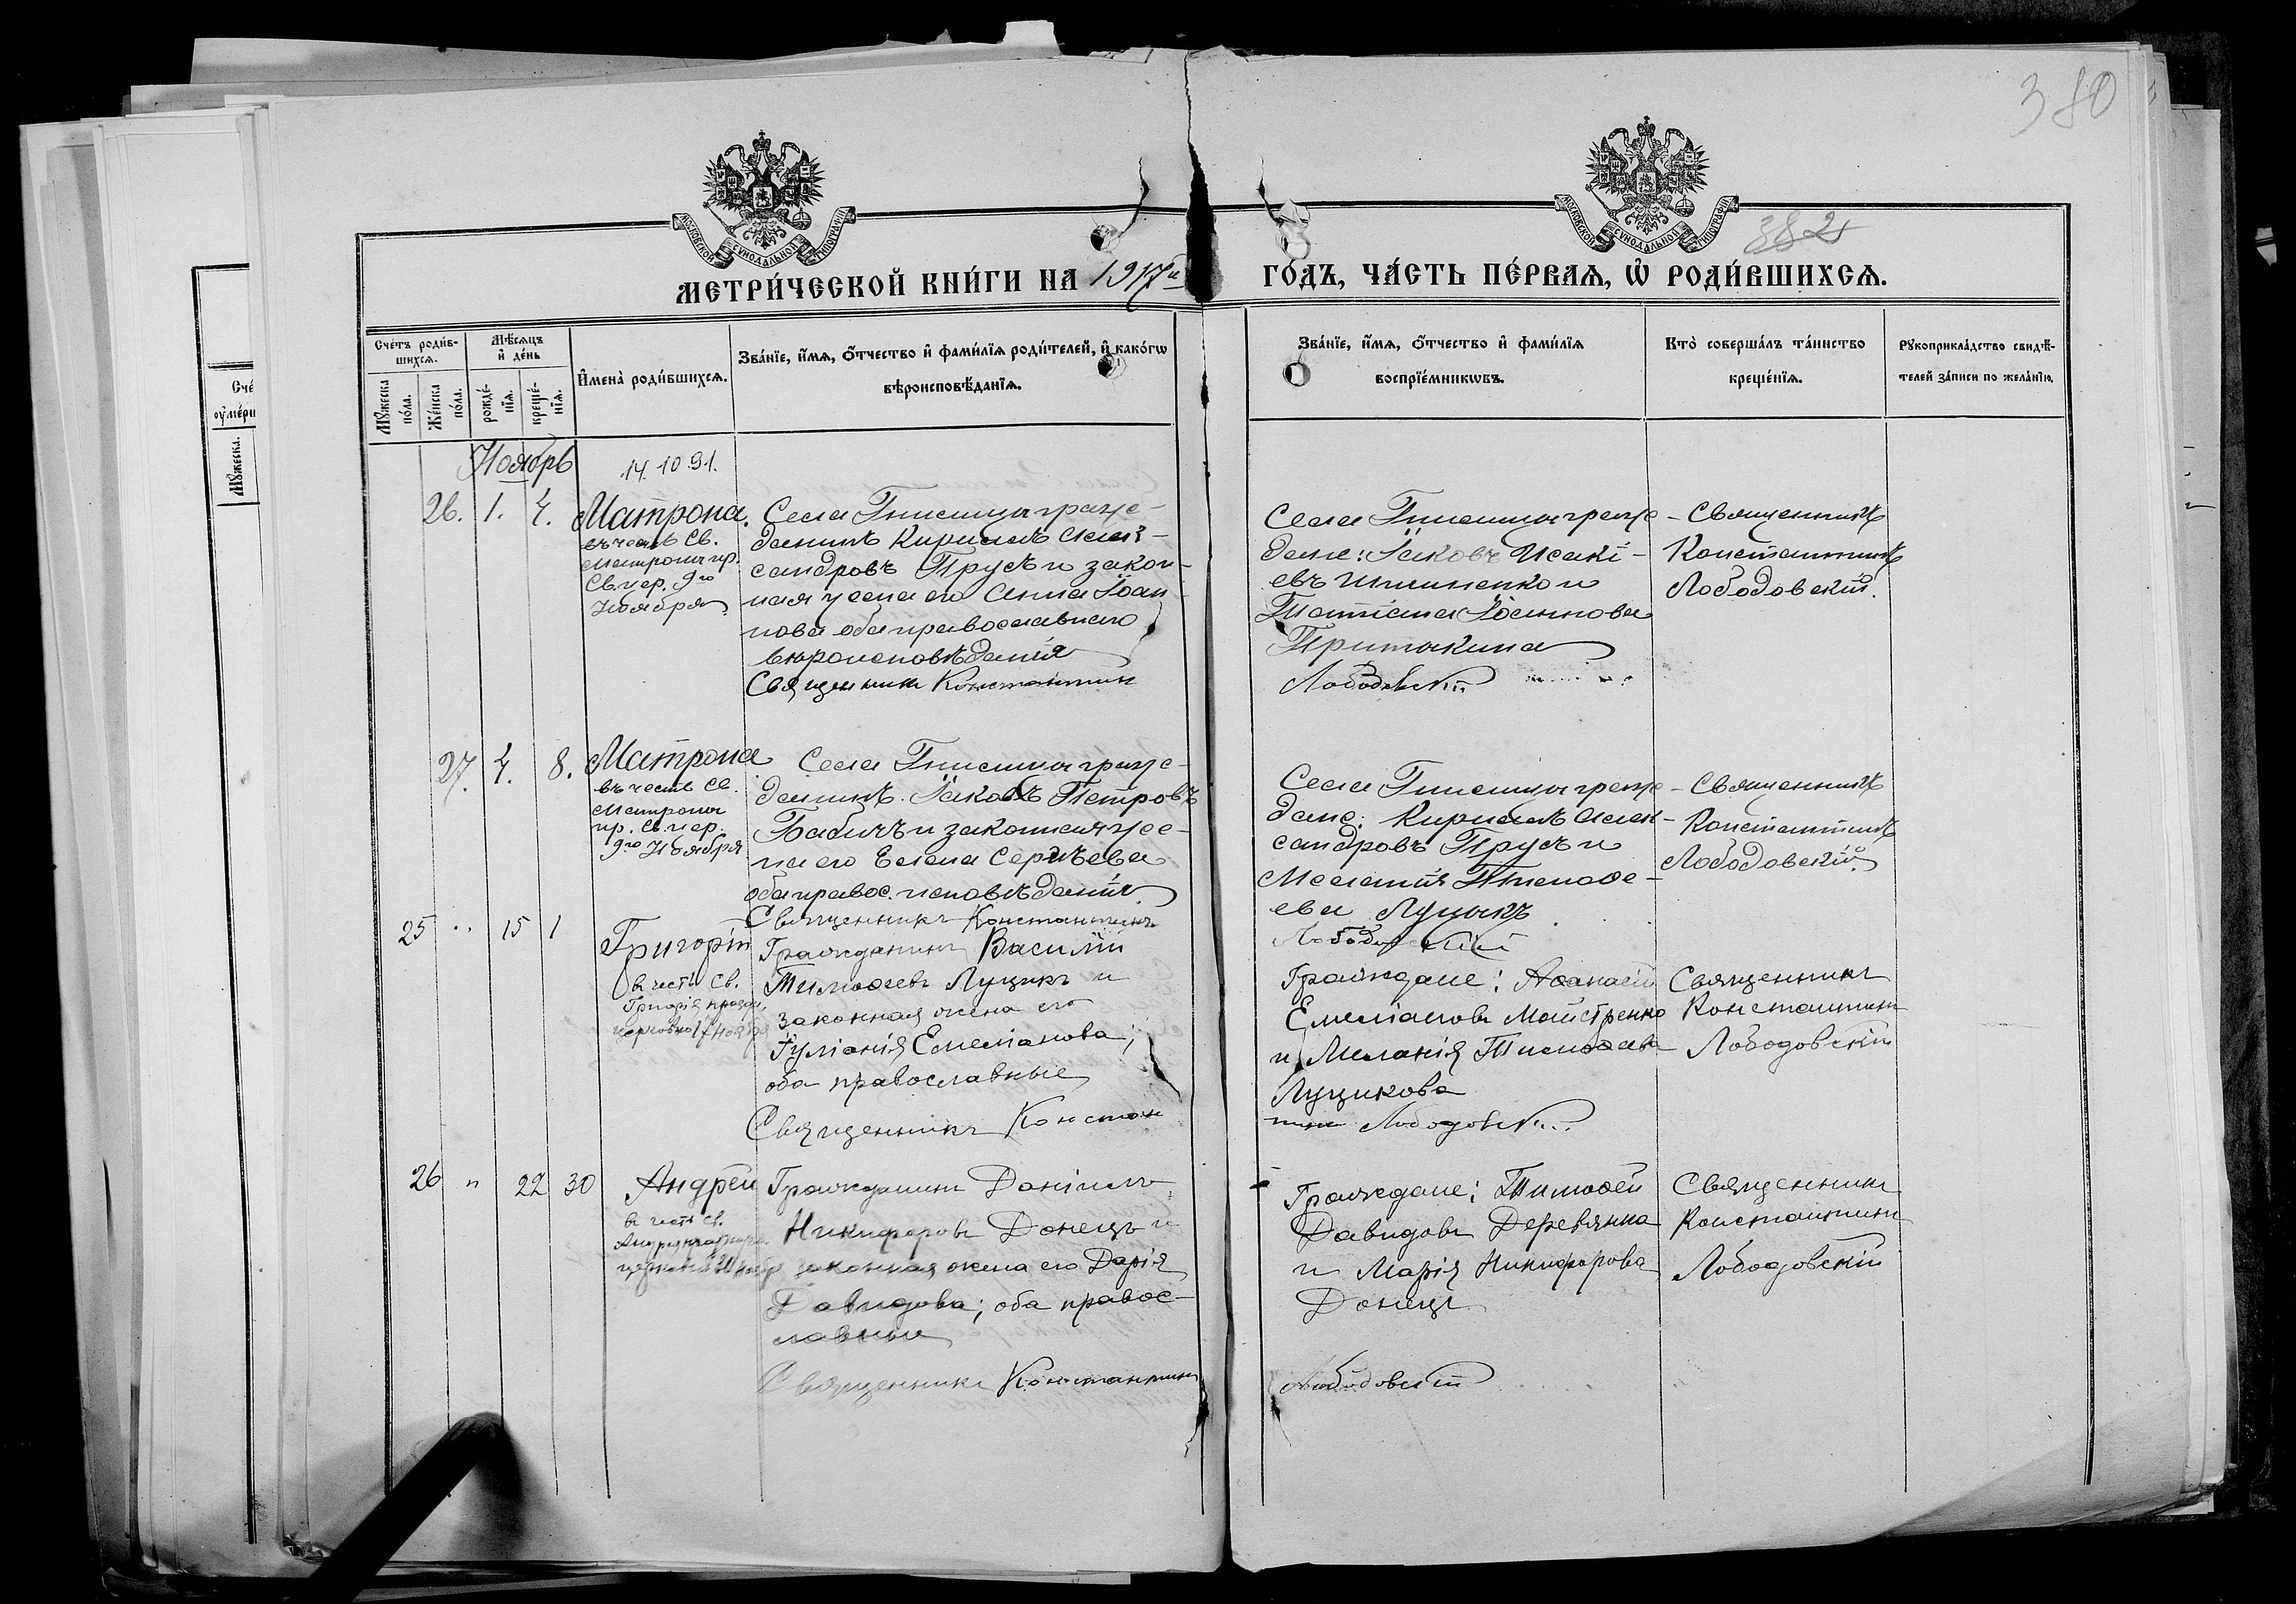 380
382
МОСКОВСКОЙ СѴНОДАЛЬНОЙ ТИПОГРАФІИ
МОСКОВСКОЙ СѴНОДАЛЬНОЙ ТИПОГРАФІИ
МЕТРИ́ЧЕСКОЙ КНИ́ГИ НА 1917й
ГО́ДЪ, ЧА́СТЬ ПЕ́РВАѦ, Ѡ҆ РОДИ́ВШИХСѦ.
Сче́тъ роди́в-
шихсѧ.
Мѣ́сѧцъ
и҆ де́нь
Мꙋ́жеска
по́ла.
Же́нска
по́ла.
рожде́-
нїѧ.
креще́-
нїѧ.
И҆мена̀ роди́вшихсѧ.
Зва́нїе, и҆́мѧ, о҆́тчество и҆ фами́лїѧ роди́телей, и҆ како́гѡ
вѣроисповѣ́данїѧ.
Зва́нїе, и҆́мѧ, о҆́тчество и҆ фами́лїѧ
воспрїе́мникѡвъ.
Кто̀ соверша́лъ та́инство
креще́нїѧ.
Рꙋкоприкла́дство свидѣ́-
телей за́писи по жела́нїю.
Сче
оумерш
Мꙋ́жеска.
Ноябрь
14.10.91.
26. 1. 4. Матрона.
въ честь Св.
Матроны пр.
Св. цер. 9го
Ноября
Села Гнилицы граж-
данинъ Кирилъ Алек-
сандровъ Прусъ и закон-
ная жена его Анна Іоан-
нова оба православнаго
вѣроисповѣданія
Священникъ Константин
Села Гнилицы граж-
дане: Іаковъ Исакі-
евъ
и
Татіана Іоаннова
Лободовскій
Священникъ
Константинъ
Лободовскій.
27. 4. 8. Матрона
въ честь Св.
Матроны
пр. Св. цер.
9го Ноября
Села Гнилицы граж-
данинъ Іаковъ Петровъ
Бабичъ и законная же-
на его Елена Сергѣева
оба правос. исповѣданія.
Священникъ Константинъ
Села Гнилицы граж-
дане: Кирилъ Алек-
сандровъ Прусъ и
Меланія Тимоѳе-
ева Луцыкъ
Лободовскій
Священникъ
Константинъ
Лободовскій.
25 " 15 1 Григорій
в честь Св.
Григорія
Гражданинъ Василій
Тимоѳеевъ Луцикъ и
законная жена его
Іуліанія Емеліанова;
оба православные
Священникъ Констан
Граждане: Аѳанасій
Емеліановъ Майстренко
и Меланія Тимоѳеева
Луцикова
тинъ Лободовскій
Священникъ
Константинъ
Лободовскій
26 " 22 30 Андрей
в честь Св.
Гражданинъ Даніилъ
Никифоровъ Донецъ и
законная жена его Дарія
Давидова; оба правос-
лавные
Священникъ Константинъ
Граждане: Тимоѳей
Давидовъ Деревянка
и Марія Никифорова
Донецъ
Лободовскій
Священникъ
Константинъ
Лободовскій